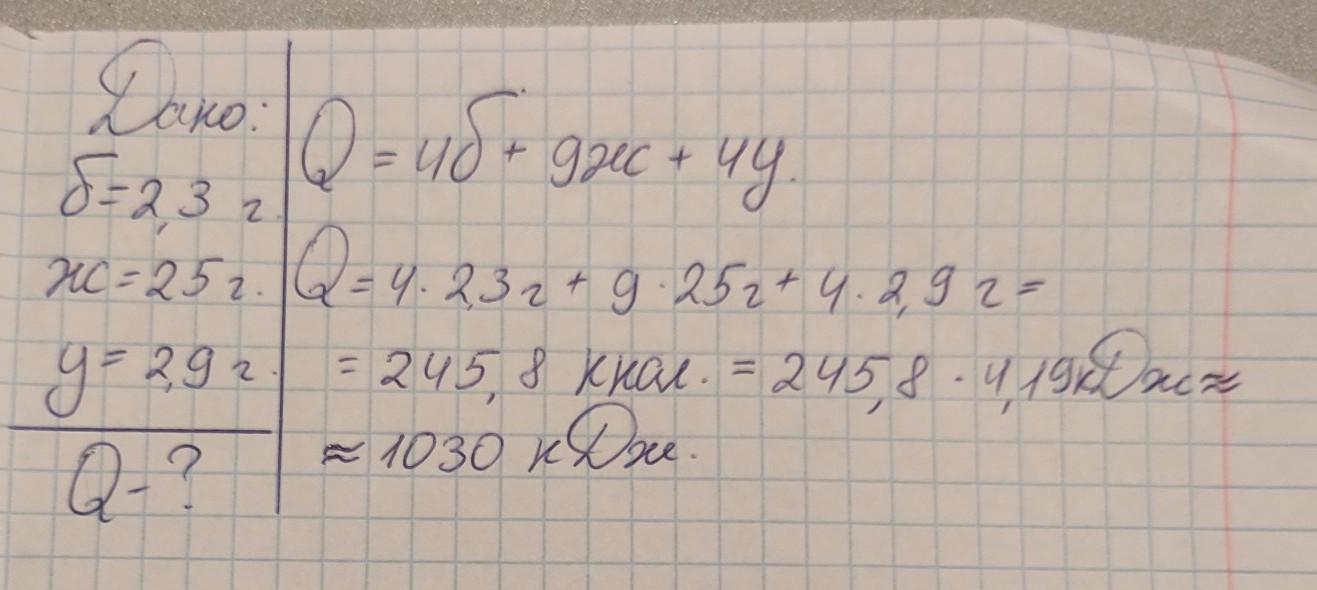 Дано:
б=2,3 г.
ж=25 г.
у=2,9 г.
Q-?
Q=4б+ 9ж+4у.
Q=4·2,3г+9·25г+4·2,9 г=
=245,8 ккал.=245,8·4,19кДж≈
≈1030 кДж.